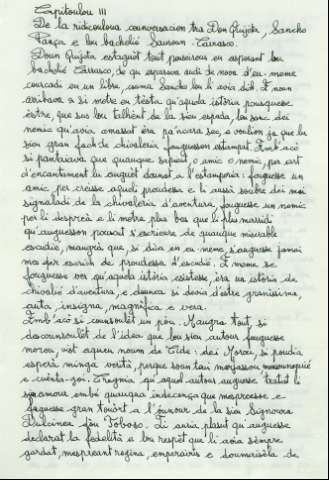 Capitoulou III
De la ridiculoua counversacion tra Don Quijota, Sancho
Pança e lou bachelié Sanson Carrasco.
Doun Quijota estaguèt tout pensirous en esperant lou
bachelié Carrasco, de qu esperava audi de nova d'eu-meme
coucadi en un libre, couma Sancho lou li avia dich. E noun
arribava a si metre en tèsta qu'aquela istòria pousquesse
èstre, que sus lou talhent de la sieu espada, lou sanc dei
nemic qu'avia amassat èra pa'ncara sec, e voulion ja que la
sieu gran fach de chivaleria fouguesson estampat. Emb'acò
si pantaiava que quauque sapient o amic o nemic, per art
d'encantament lu auguèt dounat a l'estamparia: fouguesse un
amic, per creisse aqueli proudessa e li aussà soubre dei mai
signaladi de la chivaleria d'aventura, fouguesse un nemic
per li despresà e li metre plus bas que li plus marridi
qu'auguesson pouscut s'escriure de quauque miserable
escudié, maugrà que, si disia en eu meme, s'auguesse jamai
mai fach escrich de proudessa d'escudié. E meme se
fouguesse ver qu'aquela istòria esistesse, èra un istòria de
chivalié d'aventura, e dounca si devia d'èstre granissima,
auta, insigna, magnifica e vera.
Emb'acò si counsoulèt un pau. Maugrà tout, si
descounsoulèt de l'idea que lou sieu autour fouguesse
morou, vist aqueu noum de Cide: dei Morou, si poudia
esperà minga verità, perque soun tout
e cuenta-soi. Cregnia qu'aquel autour auguesse tratat li
sieu amour embé quauqua indecença que mespresesse e
faguesse gran touòrt a l'ounour de la sieu Signoura
Dulcinea dòu Toboso. Li auria plasut qu'auguesse
declarat la fedelità e lou respèt que li avia sempre
gardat, mespresant regina, emperairis e doumaisèla de